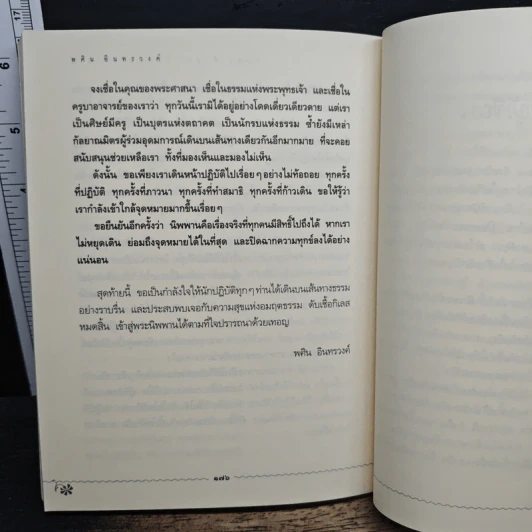 พศิน อินทรวงค์
จงเชื่อในคุณของพระศาสนา เชื่อในธรรมแห่งพระพุทธเจ้า และเชื่อใน
ครูบาอาจารย์ของเราว่า ทุกวันนี้เรามิได้อยู่อย่างโดดเดี่ยวเดียวดาย แต่เรา
เป็นศิษย์มีครู เป็นบุตรแห่งตถาคต เป็นนักรบแห่งธรรม ซ้ำยังมีเหล่า
กัลยาณมิตรผู้ร่วมอุดมการณ์เดินบนเส้นทางเดียวกันอีกมากมาย ที่จะคอย
สนับสนุนช่วยเหลือเรา ทั้งที่มองเห็นและมองไม่เห็น
ดังนั้น ขอเพียงเราเดินหน้าปฏิบัติไปเรื่อยๆอย่างไม่ท้อถอย ทุกครั้ง
ที่ปฏิบัติ ทุกครั้งที่ภาวนา ทุกครั้งที่ทำสมาธิ ทุกครั้งที่ก้าวเดิน ขอให้รู้ว่า
เรากำลังเข้าใกล้จุดหมายมากขึ้นเรื่อยๆ
ขอยืนยันอีกครั้งว่า นิพพานคือเรื่องจริงที่ทุกคนมีสิทธิ์ไปถึงได้ หากเรา
ไม่หยุดเดิน ย่อมถึงจุดหมายได้ในที่สุด และปิดฉากความทุกข์ลงได้อย่าง
แน่นอน
สุดท้ายนี้ ขอเป็นกำลังใจให้นักปฏิบัติทุกๆท่านได้เดินบนเส้นทางธรรม
อย่างราบรื่น และประสบพบเจอกับความสุขแห่งอมฤตธรรม ดับเชื้อกิเลส
หมดสิ้น เข้าสู่พระนิพพานได้ตามที่ใจปรารถนาด้วยเทอญ
พศิน อินทรวงค์
๑๗๖
17
6
5